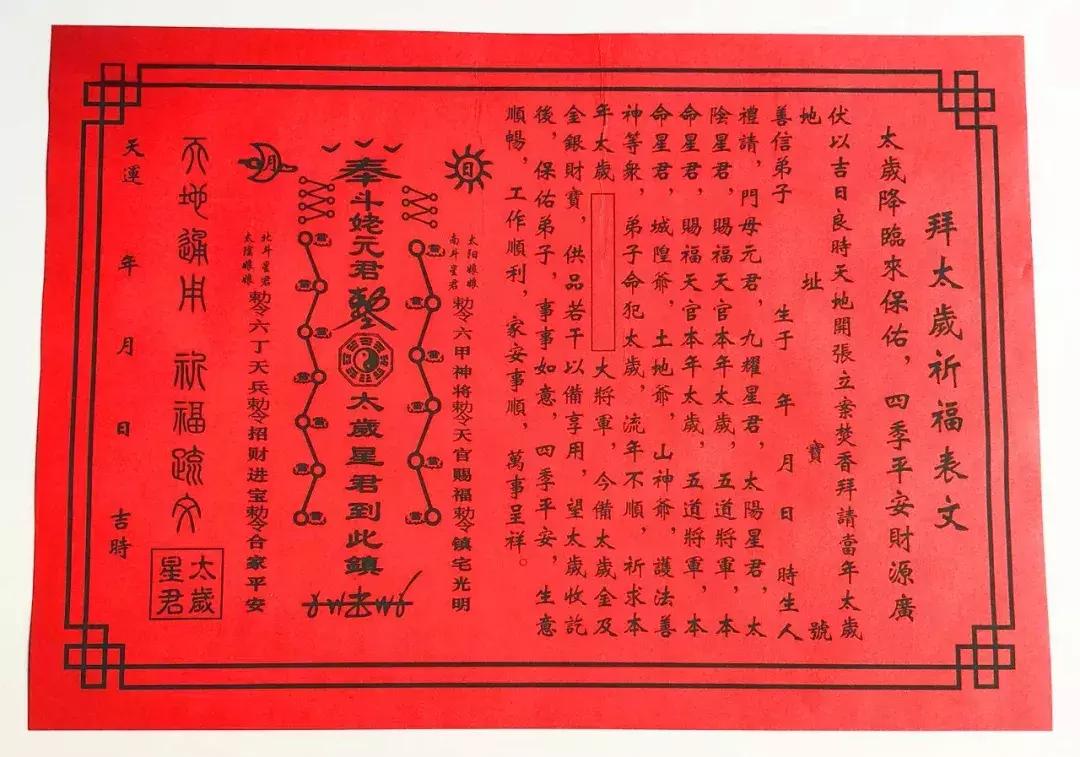 拜太歲祈福表文
太歲降臨來保佑，四季平安財源廣
伏以吉日良時天地開張立案焚香拜請當年太歲
地址寶號
善信弟子生于年月日時生人
禮請，門母元君，九耀星君，太陽星君，太
陰星君，賜福天官本年太歲，五道將軍，本
命星君，賜福天官本年太歲，五道將軍，本
命星君，城隍爺，土地爺，山神爺，護法善
神等衆，弟子命犯太歲，流年不順，祈求本
年太歲大將軍，今備太歲金及
金銀財寶，供品若干以備享用，望太歲收訖
後，保佑弟子，事事如意，四季平安，生意
順暢，工作順利，家安事順，萬事呈祥。
日
太阳娘娘
南斗星君
勅令六甲神将勅令天官賜福勅令镇宅光明
奉斗姥元君勅太歲星君到此鎮
月
北斗星君
太陰娘娘
勅令六丁天兵勅令招财进宝勅令合家平安
天地通用祈福疏文
太歲
星君
天運年月日吉時